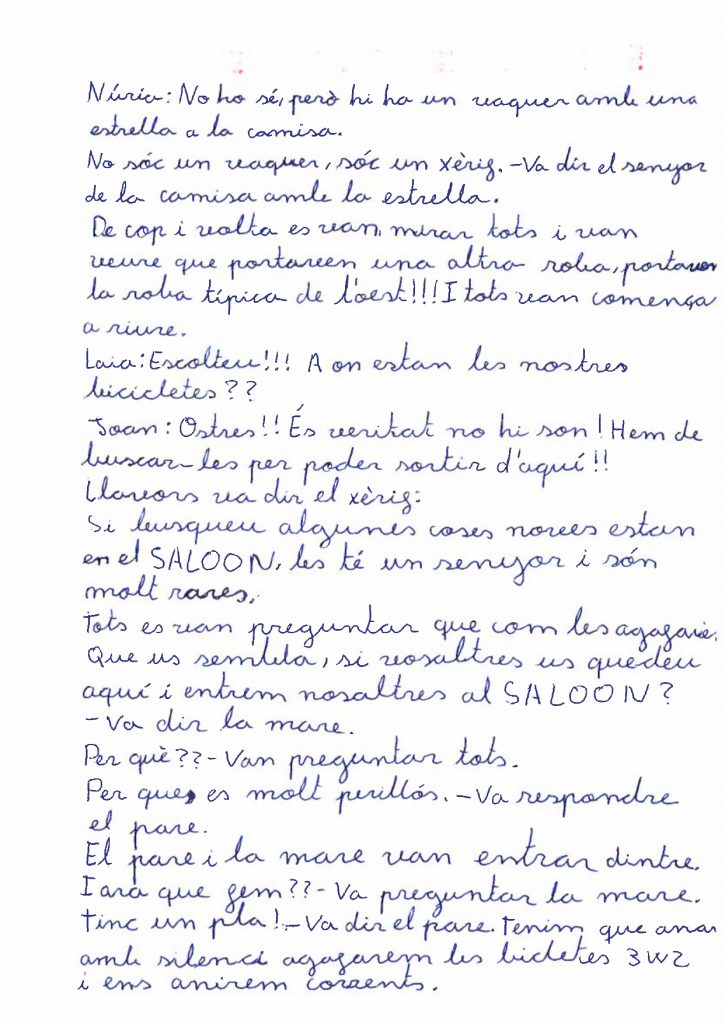 Núria: No ho sé, però hi ha un vaquer amb una
estrella a la camisa.
No sóc un vaquer, sóc un xèrig. -Va dir el senyor
de la camisa amb la estrella.
De cop i volta es van mirar tots i van
veure que portaven una altra roba, portaven
la roba típica de l'oest!!! I tots van comença
a riure.
Laia: Escolteu!!! A on estan les nostres
bicicletes??
Joan: Ostres!! És veritat no hi son! Hem de
buscar-les per poder sortir d'aquí!!
Llavors va dir el xèrig:
Si busqueu algunes coses noves estan
en el SALOON, les té un senyor i són
molt rares.
Tots es van preguntar que com les agagarie.
Que us sembla, si vosaltres us quedeu
aquí i entrem nosaltres al SALOON?
-Va dir la mare.
Per què??-Van preguntar tots.
Per que, es molt perillós. -Va respondre
el pare.
El pare i la mare van entrar dintre.
I ara que fem??-Va preguntar la mare.
Tinc un pla!-Va dir el pare. Tenim que anar
amb silenci agagarem les bicletes 3W2
i ens anirem corrents.